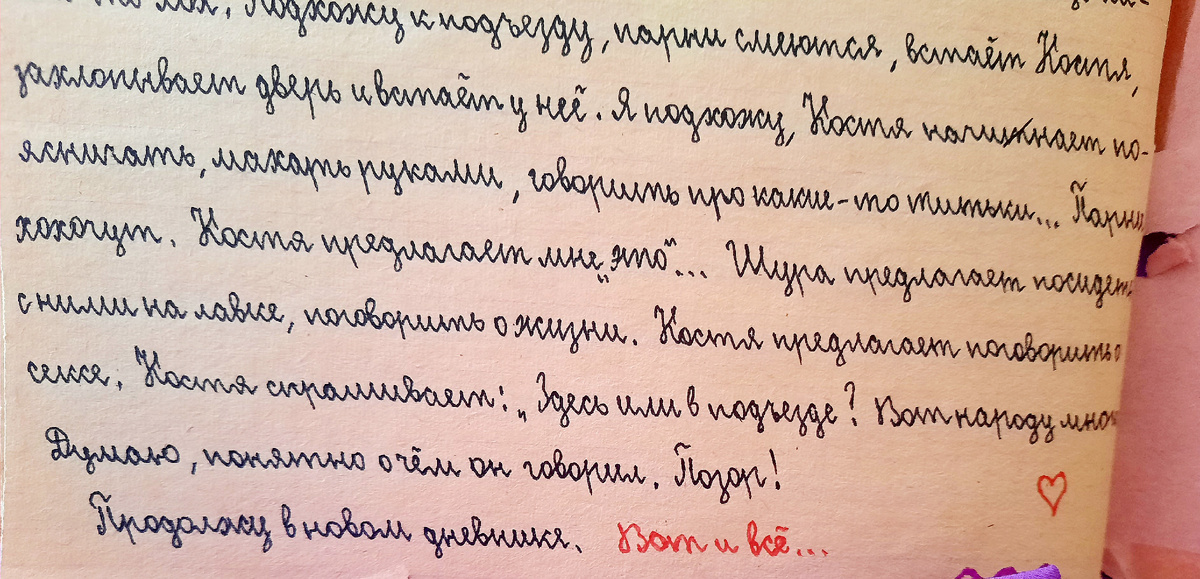 Подхожу к подъезду, парни смеются, встаёт Костя,
захлопывает дверь и встаёт у неё. Я подхожу, Костя начинает по-
ясничать, махать руками, говорить про какие-то титьки... Парни
хохочут. Костя предлагает мне „это“... Шура предлагает посидеть
с ними на лавке, поговорить о жизни. Костя предлагает поговорить о
сексе. Костя спрашивает: „Здесь или в подъезде? Вот народу много
Думаю, понятно о чём он говорил. Позор!
Продолжу в новом дневнике. Вот и всё...